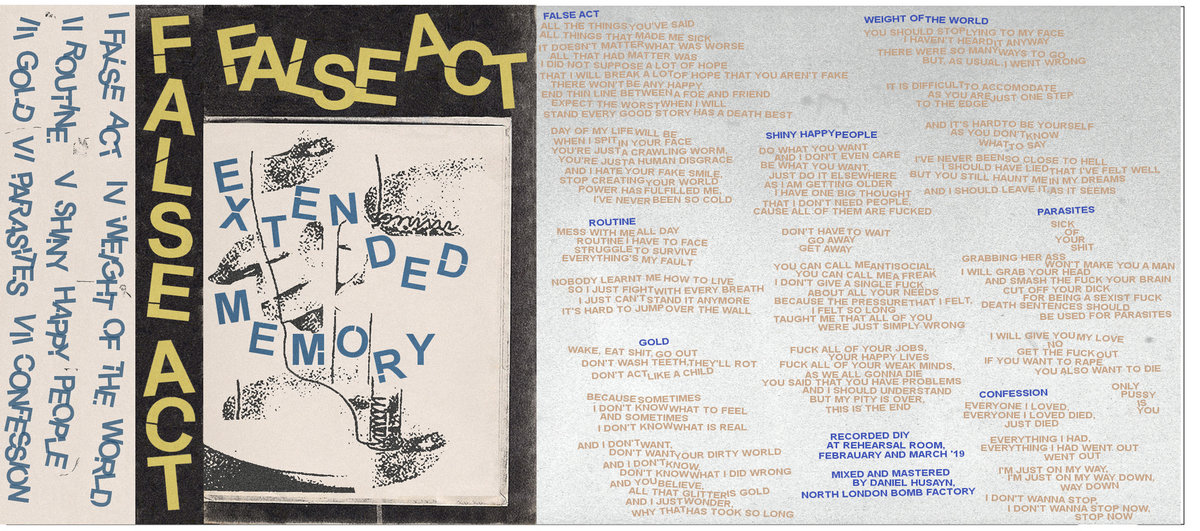 I FALSE ACT IV WEIGHT OF THE WORLD
II ROUTINE V SHINY HAPPY PEOPLE
III GOLD VI PARASITES VII CONFESSION
FALSE ACT
FALSE ACT
EXTENDED
MEMORY
FALSE ACT
ALL THE THINGS YOU'VE SAID
ALL THINGS THAT MADE ME SICK
IT DOESN'T MATTER WHAT WAS WORSE
ALL THAT HAD MATTER WAS
I DID NOT SUPPOSE A LOT OF HOPE
THAT I WILL BREAK A LOT OF HOPE THAT YOU AREN'T FAKE
THERE WON'T BE ANY HAPPY
END THIN LINE BETWEEN A FOE AND FRIEND
EXPECT THE WORST WHEN I WILL
STAND EVERY GOOD STORY HAS A DEATH BEST
DAY OF MY LIFE WILL BE
WHEN I SPIT IN YOUR FACE
YOU'RE JUST A CRAWLING WORM,
YOU'RE JUST A HUMAN DISGRACE
AND I HATE YOUR FAKE SMILE,
STOP CREATING YOUR WORLD
POWER HAS FULFILLED ME,
I'VE NEVER BEEN SO COLD
ROUTINE
MESS WITH ME ALL DAY
ROUTINE I HAVE TO FACE
STRUGGLE TO SURVIVE
EVERYTHING'S MY FAULT
NOBODY LEARNT ME HOW TO LIVE
SO I JUST FIGHT WITH EVERY BREATH
I JUST CAN'T STAND IT ANYMORE
IT'S HARD TO JUMP OVER THE WALL
GOLD
WAKE, EAT SHIT, GO OUT
DON'T WASH TEETH, THEY'LL ROT
DON'T ACT LIKE A CHILD
BECAUSE SOMETIMES
I DON'T KNOW WHAT TO FEEL
AND SOMETIMES
I DON'T KNOW WHAT IS REAL
AND I DON'T WANT,
DON'T WANT YOUR DIRTY WORLD
AND I DON'T KNOW,
DON'T KNOW WHAT I DID WRONG
AND YOU BELIEVE,
ALL THAT GLITTER IS GOLD
AND I JUST WONDER,
WHY THAT HAS TOOK SO LONG
WEIGHT OF THE WORLD
YOU SHOULD STOP LYING TO MY FACE
I HAVEN'T HEARD IT ANYWAY
THERE WERE SO MANY WAYS TO GO
BUT, AS USUAL, I WENT WRONG
IT IS DIFFICULT TO ACCOMODATE
AS YOU ARE JUST ONE STEP
TO THE EDGE
AND IT'S HARD TO BE YOURSELF
AS YOU DON'T KNOW
WHAT TO SAY
I'VE NEVER BEEN SO CLOSE TO HELL
I SHOULD HAVE LIED THAT I'VE FELT WELL
BUT YOU STILL HAUNT ME IN MY DREAMS
AND I SHOULD LEAVE IT AS IT SEEMS
SHINY HAPPY PEOPLE
DO WHAT YOU WANT
AND I DON'T EVEN CARE
BE WHAT YOU WANT,
JUST DO IT ELSEWHERE
AS I AM GETTING OLDER
I HAVE ONE BIG THOUGHT
THAT I DON'T NEED PEOPLE,
CAUSE ALL OF THEM ARE FUCKED
DON'T HAVE TO WAIT
GO AWAY
GET AWAY
YOU CAN CALL ME ANTISOCIAL,
YOU CAN CALL ME A FREAK
I DON'T GIVE A SINGLE FUCK
ABOUT ALL YOUR NEEDS
BECAUSE THE PRESSURE THAT I FELT,
I FELT SO LONG
TAUGHT ME THAT ALL OF YOU
WERE JUST SIMPLY WRONG
FUCK ALL OF YOUR JOBS,
YOUR HAPPY LIVES
FUCK ALL OF YOUR WEAK MINDS,
AS WE ALL GONNA DIE
YOU SAID THAT YOU HAVE PROBLEMS
AND I SHOULD UNDERSTAND
BUT MY PITY IS OVER,
THIS IS THE END
RECORDED DIY
AT REHEARSAL ROOM,
FEBRAUARY AND MARCH '19
MIXED AND MASTERED
BY DANIEL HUSAYN,
NORTH LONDON BOMB FACTORY
PARASITES
SICK
OF
YOUR
SHIT
GRABBING HER ASS
WON'T MAKE YOU A MAN
I WILL GRAB YOUR HEAD
AND SMASH THE FUCK YOUR BRAIN
CUT OFF YOUR DICK
FOR BEING A SEXIST FUCK
DEATH SENTENCES SHOULD
BE USED FOR PARASITES
I WILL GIVE YOU MY LOVE
NO
GET THE FUCK OUT
IF YOU WANT TO RAPE
YOU ALSO WANT TO DIE
ONLY
PUSSY
IS
YOU
CONFESSION
EVERYONE I LOVED,
EVERYONE I LOVED DIED,
JUST DIED
EVERYTHING I HAD,
EVERYTHING I HAD WENT OUT
WENT OUT
I'M JUST ON MY WAY,
I'M JUST ON MY WAY DOWN,
WAY DOWN
I DON'T WANNA STOP,
I DON'T WANNA STOP NOW,
STOP NOW